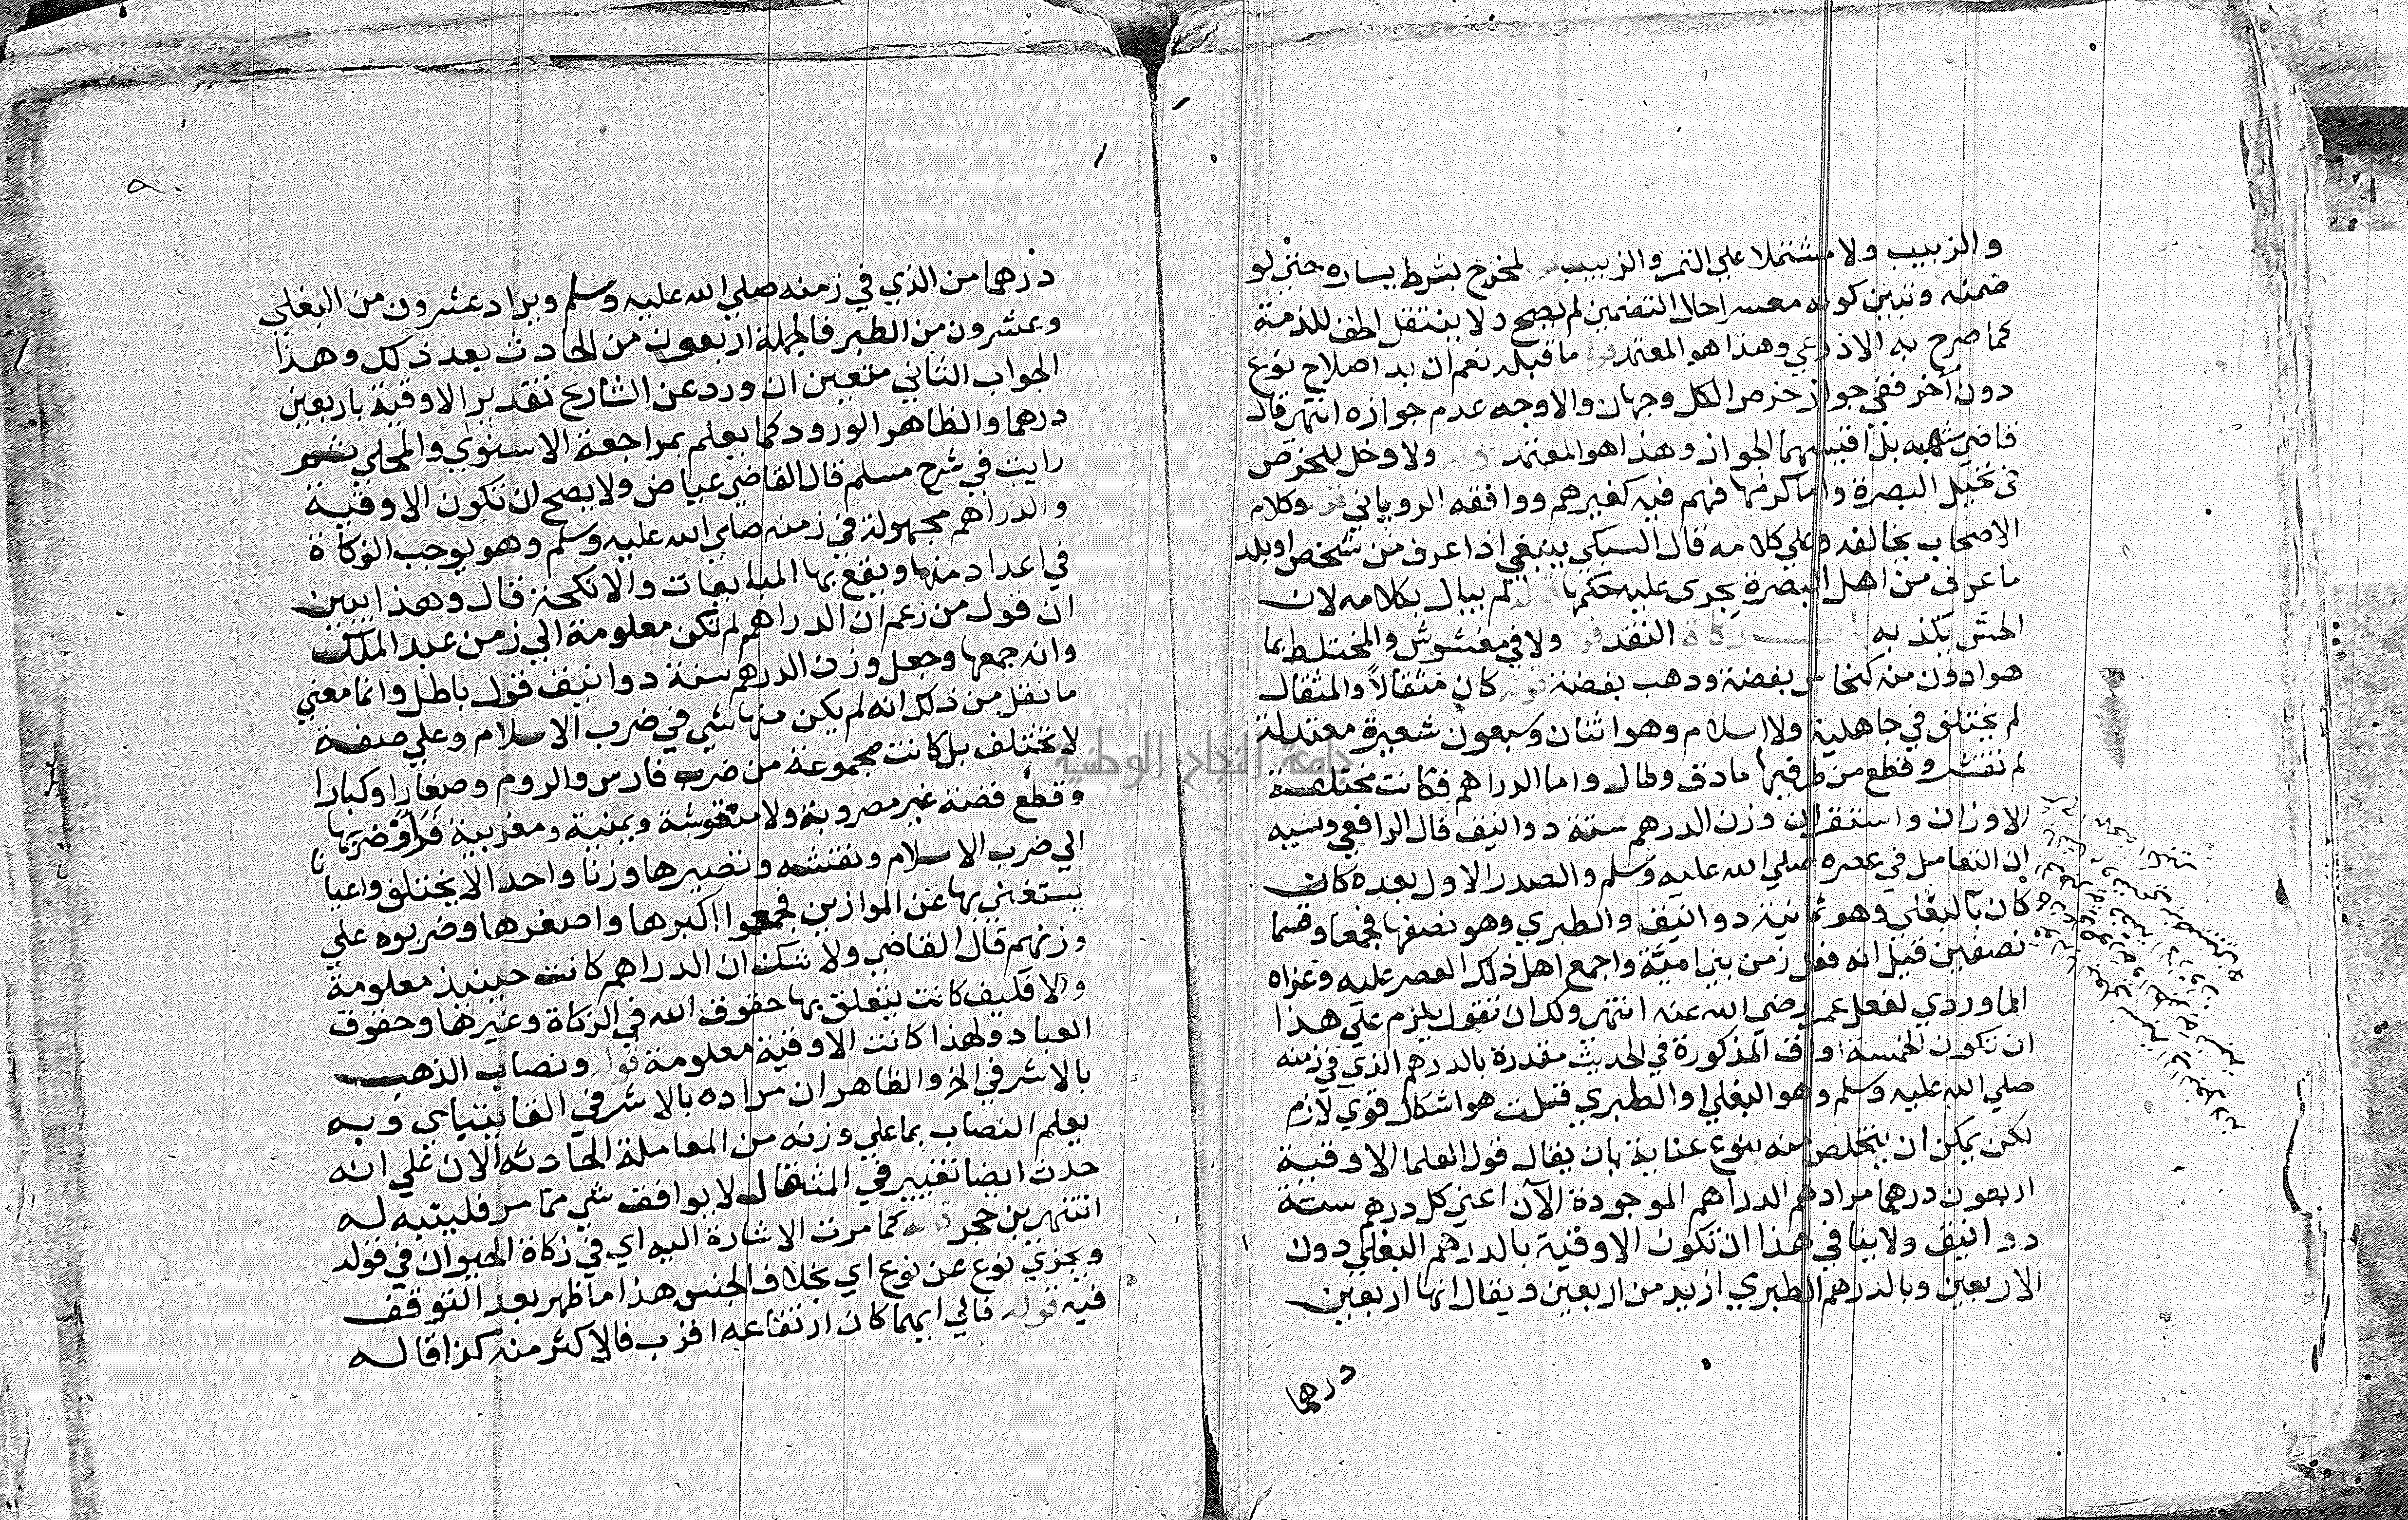 والزبيب ولا مشتملا علي التمر والزبيب لمخرج بشرط يساره حتي لو
ضمنه وتبين كونه معسرا حال التضمين لم يصح ولا ينتقل لحف للذمة
كما صرح به الاذرعي وهذا هو المعتمد ما قبله نعم ان بدا صلاح نوع
دون آخر ففي جواز خرص الكل وجهان والاوجه عدم جوازه انتهر قال
قاضي شهبه بل اقيسهما الجواز وهذا هو المعتمد قوله ولا دخل للخرص
في نخيل البصرة واما كرمها فهم فيه كغيرهم ووافقه الروياني وكلام
الاصحاب يخالفه وعلي كلامه قال السبكي ينبغي اذا عرف من شخص او بلد
ما عرف من اهل البصرة يجري عليه حكمها قوله لم يبال بكلامه لان
الحس يكذبه باب زكاة النقد قوله ولا في مغشوش والمختلط بما
هو ادون منه كنحاس بفضة وذهب بفضة قوله كان مثقالاً والمثقال
لم يختلف في جاهلية ولا اسلام وهو اثنان وسبعون شعيرة معتدلة
لم تقشر وقطع من طرفيها ما دق وطال واما الدراهم فكانت مختلفة
الاوزان واستقر ان وزن الدرهم ستة دوانيق قال الرافعي وشبه
ان التعامل في عصره صلي الله عليه وسلم والصدر الاول بعده كان
كان بالبغلي وهو ثمانية دوانيق والطبري وهو نصفها فجمعا وقسما
نصفين قيل انه فعل زمن بني امية واجمع اهل ذلك العصر عليه وعزاه
الماوردي لفعل عمر رضي الله عنه انتهر ولك ان تقول يلزم علي هذا
ان تكون الخمسة اواق المذكورة في الحديث مقدرة بالدرهم الذي في زمنه
صلي الله عليه وسلم وهو البغلي او الطبري قلت هو اشكال قوي لازم
لكن يمكن ان يتخلص منه بنوع عناية بان يقال قول العلما الاوقية
اربعون درهما مرادهم الدراهم الموجودة الآن اعني كل درهم ستة
دوانيق ولا ينافي هذا ان تكون الاوقية بالدرهم البغلي دون
الاربعين وبالدرهم الطبري ازيد من اربعين ويقال انها اربعين
درهما
درهما من الذي في زمنه صلي الله عليه وسلم ويراد عشرون من البغلي
وعشرون من الطبر فالجملة اربعون من الحادث بعد ذلك وهذا
الجواب الثاني متعين ان ورد عن الشارع تقدير الاوقية باربعين
درهما والظاهر الورود كما يعلم بمراجعة الاسنوي والمحلي ثم
رايت في شرح مسلم قال القاضي عياض ولا يصح ان تكون الاوقية
والدراهم مجهولة في زمنه صلي الله عليه وسلم وهو يوجب الزكاة
في اعداد منها ويقع بها المبايعات والانكحة قال وهذا يبين
ان قول من زعم ان الدراهم لم تكن معلومة الي زمن عبد الملك
وانه جمعها وجعل وزن الدرهم ستة دوانيق قول باطل وانما معني
ما نقل من ذلك انه لم يكن منها شي في ضرب الاسلام وعلي صفة
لا تختلف بل كانت مجموعة من ضرب فارس والروم وصغارا وكبارا
وقطع فضة غير مضروبة ولا منقوشة ويمنية ومغربية فرأوا ضربها
الي ضرب الاسلام ونقشه وتصييرها وزنا واحدا لا يختلف واعيانا
يستغني بها عن الموازين فجمعوا اكبرها واصغرها وضربوه علي
وزنهم قال القاضي ولا شك ان الدراهم كانت حينئذ معلومة
والا فكيف كانت يتعلق بها حقوق الله في الزكاة وغيرها وحقوق
العباد ولهذا كانت الاوقية معلومة قوله ونصاب الذهب
بالاشرفي الخ والظاهر ان مراده بالاشرفي القايتبياي وبه
يعلم النصاب بما علي وزنه من المعاملة الحادثه الان علي انه
حدث ايضا تغيير في المثقال لا يوافق شي مما مر فليتبه له
انتهر بن حجر قوله كما مرت الاشارة اليه اي في زكاة الحيوان في قوله
ويجزي نوع عن نوع اي بخلاف الجنس هذا ما ظهر بعد التوقف
فيه قوله فالي ايهما كان ارتفاعه اقرب فالاكثر منه كذا قاله
جامعة النجاح الوطنية